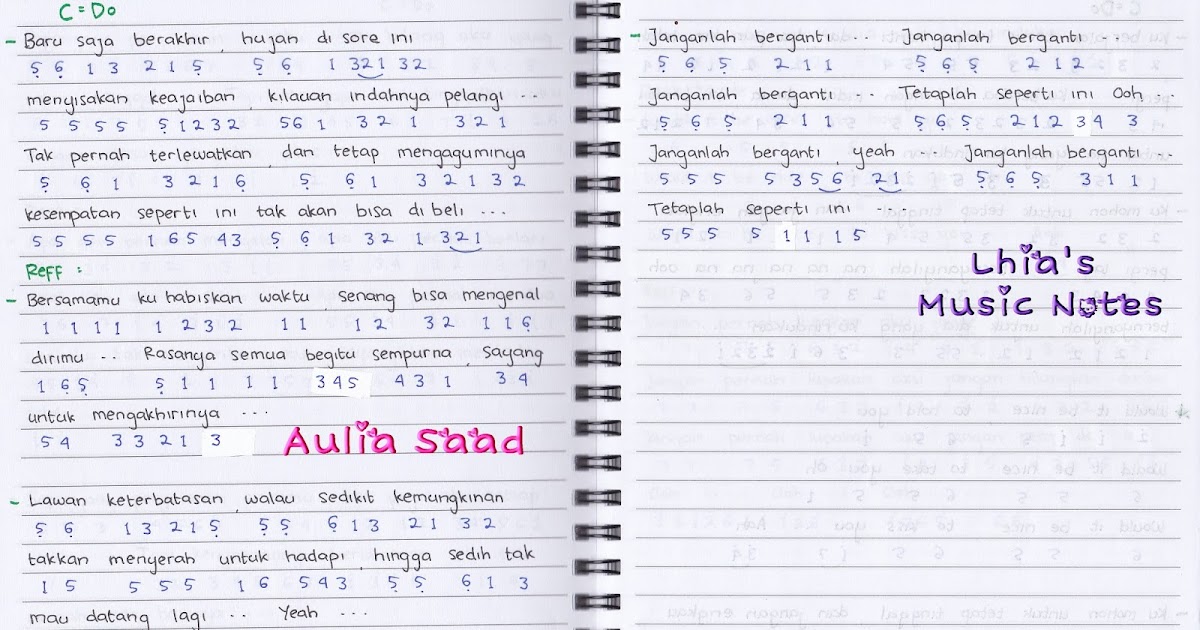 C = Do
- Baru saja berakhir, hujan di sore ini
5̣ 6̣ 1 3 2 1 5̣ 5̣ 6̣ 1 321 32
menyisakan keajaiban, kilauan indahnya pelangi ...
5 5 5 5 5̣ 1 2 3 2 56 1 3 2 1 3 2 1
Tak pernah terlewatkan, dan tetap mengaguminya
5̣ 6̣ 1 3 2 1 6̣ 5̣ 6̣ 1 3 2 1 3 2
kesempatan seperti ini tak akan bisa di beli ...
5 5 5 5 1 65 43 5̣ 6̣ 1 32 1 321
Reff :
- Bersamamu ku habiskan waktu, senang bisa mengenal
1 1 1 1 1 2 3 2 1 1 1 2 3 2 1 1 6̣
dirimu .. Rasanya semua begitu sempurna, sayang
1 6̣ 5̣ 5̣ 1 1 1 1 345 4 3 1 3 4
untuk mengakhirinya ...
5 4 3 3 2 1 3
Aulia Saad
- Lawan keterbatasan, walau sedikit kemungkinan
5̣ 6̣ 1 3 2 1 5̣ 5̣ 5̣ 6̣ 1 3 2 1 3 2
takkan menyerah untuk hadapi, hingga sedih tak
1 5 5 5 5 1 6 543 5̣ 5̣ 6̣ 1 3
mau datang lagi .. Yeah ...
- Janganlah berganti ... Janganlah berganti ...
5̣ 6̣ 5̣ 2 1 1 5̣ 6̣ 5̣ 2 1 2
Janganlah berganti ... Tetaplah seperti ini Ooh
5̣ 6̣ 5̣ 2 1 1 5̣ 6̣ 5̣ 2 1 2 3 4 3
Janganlah berganti, yeah ... Janganlah berganti ...
5 5 5 5 3 5 6 21 5̣ 6̣ 5̣ 3 1 1
Tetaplah seperti ini ...
5 5 5 5 1 1 1 5
Lhia's
Music Notes